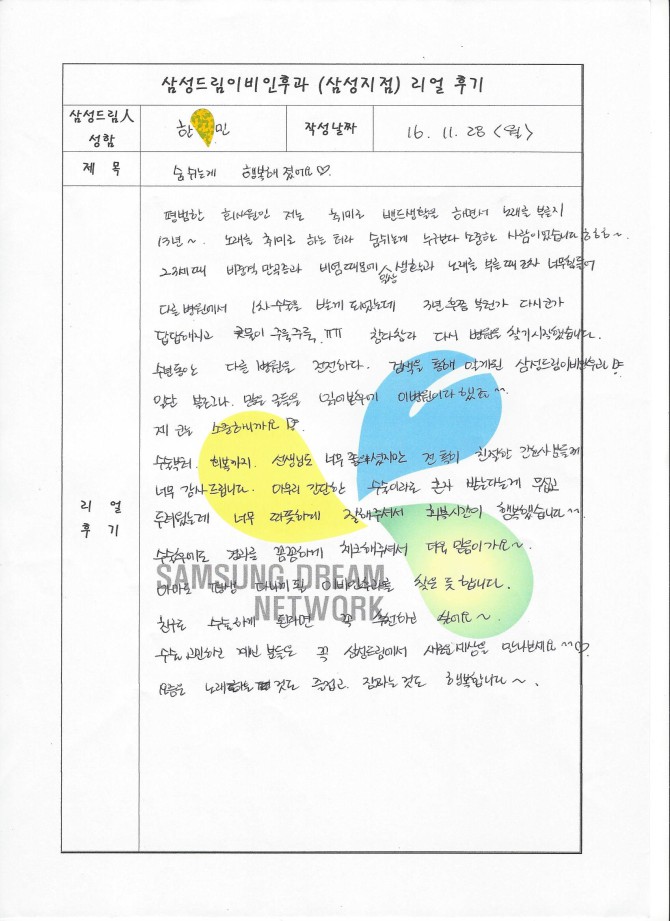 삼성드림이비인후과 (삼성지점) 리얼 후기
삼성드림人 성함
한 민
작성날짜
16. 11. 28 <월>
제 목
숨쉬는게 행복해 졌어요♡.
리 얼 후 기
평범한 회사원인 저는 취미로 밴드생활을 하면서 노래를 부른지
13년~. 노래를 취미로 하는 터라 숨쉬는게 누구보다 소중한 사람이었습니다 ~.
23세때 비중격 만곡증과 비염때문에 일상생활과 노래를 부를때 너무힘들어
다른병원에서 1차수술을 받게 되었는데 3년후쯤 부턴가 다시코가
답답해지고 콧물이 주륵주륵, ㅠㅠ 참다참다 다시 병원을 찾기시작했습니다.
수년동안 다른 병원을 전전하다. 검색을 통해 알게된 삼성드림이비인후과
일단 블로그나. 많은 글들을 읽어본후에 이병원이다 했죠 ~.
제 코는 소중하니까요
수술부터. 회복까지. 선생님도 너무 좋으셨지만 전 특히 친절한 간호사분들께
너무 감사드립니다. 아무리 간단한 수술이라도 혼자 받는다는게 무섭고
두려웠는데 너무 따뜻하게 잘해주셔서 회복시간이 행복했습니다~.
수술후에도 경과를 꼼꼼하게 체크해주셔서 더욱 믿음이가요~.
아마도 평생 다니게될 이비인후과를 찾은 듯 합니다.
SAMSUNG DREAM
NETWORK
친구도 수술하게 된다면 꼭 추천하고 싶어요~.
수술 고민하고 계신 분들은 꼭 삼성드림에서 새로운세상을 만나보세요~♡.
요즘은 노래하는 것도 즐겁고. 잠자는것도 행복합니다~.